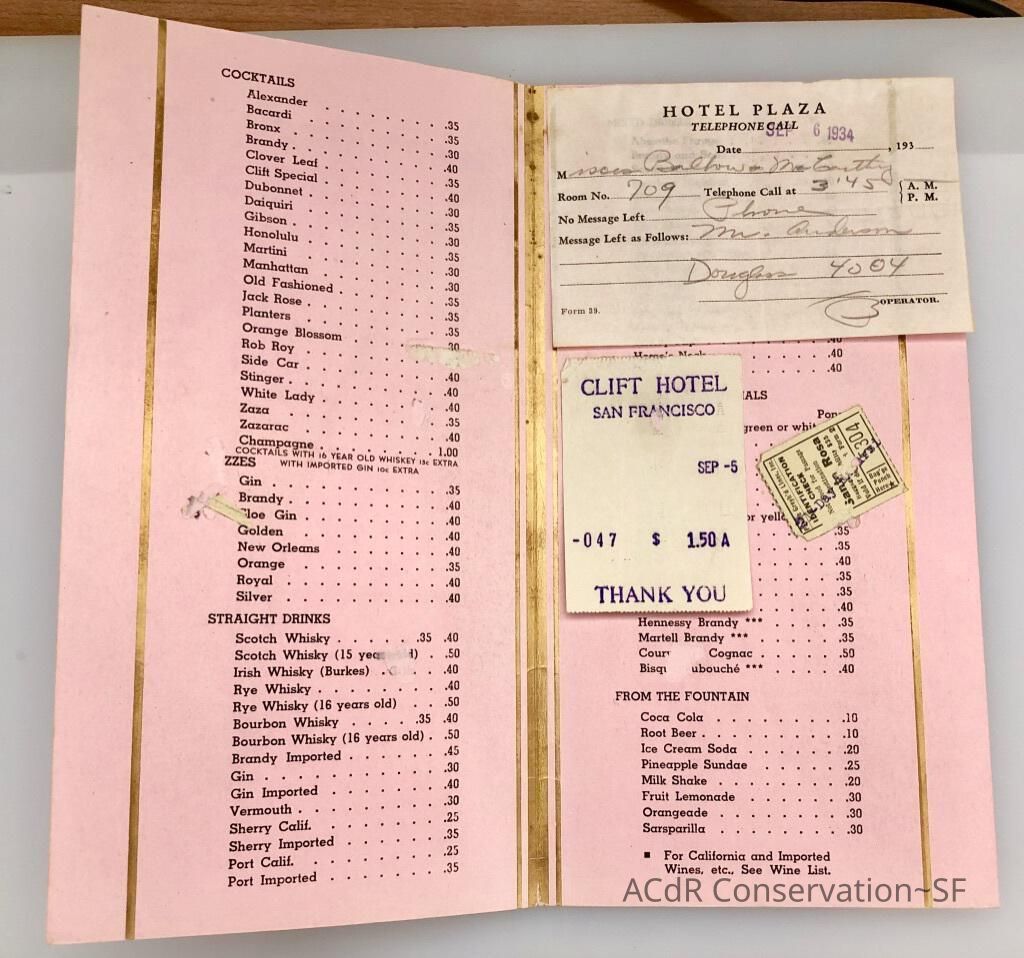 COCKTAILS
Alexander . . . . . . . .35
Bacardi . . . . . . . .35
Bronx . . . . . . . .30
Brandy . . . . . . . .40
Clover Leaf . . . . . . .35
Clift Special . . . . . . .40
Dubonnet . . . . . . . .30
Daiquiri . . . . . . . .35
Gibson . . . . . . . .30
Honolulu . . . . . . . .35
Martini . . . . . . . .30
Manhattan . . . . . . . .30
Old Fashioned . . . . . . .35
Jack Rose . . . . . . . .35
Planters . . . . . . . .35
Orange Blossom . . . . . .30
Rob Roy . . . . .
Side Car . . . . . . . .40
Stinger . . . . . . . .40
White Lady . . . . . . .40
Zaza . . . . . . . .35
Zazarac . . . . . . . .40
Champagne . . . . . . . 1.00
COCKTAILS WITH 16 YEAR OLD WHISKEY 15c EXTRA
WITH IMPORTED GIN 10c EXTRA
ZZES
Gin . . . . . . . .35
Brandy . . . . . . . .40
Sloe Gin . . . . . . . .40
Golden . . . . . . . .40
New Orleans . . . . . . .40
Orange . . . . . . . .35
Royal . . . . . . . .40
Silver . . . . . . . .40
STRAIGHT DRINKS
Scotch Whisky . . . . . .35 .40
Scotch Whisky (15 yea d) . .50
Irish Whisky (Burkes) . . . .40
Rye Whisky . . . . . . . .40
Rye Whisky (16 years old) . . .50
Bourbon Whisky . . . . . .35 .40
Bourbon Whisky (16 years old) . .50
Brandy Imported . . . . . .45
Gin . . . . . . . .30
Gin Imported . . . . . . .40
Vermouth . . . . . . . .30
Sherry Calif. . . . . . . .25
Sherry Imported . . . . . .35
Port Calif. . . . . . . .25
Port Imported . . . . . . .35
HOTEL PLAZA
TELEPHONE CALL
SEP 6 1934
Date , 193
Misses Balhow & McCarthy
Room No. 709 Telephone Call at 3'45 { A. M. P. M.
No Message Left Phone
Message Left as Follows: Mr. Anderson
Douglass 4004
OPERATOR.
Form 39.
.40
Horse's Neck . . . . .40
.40
CLIFT HOTEL
SAN FRANCISCO
SEP -5
-047 $ 1.50 A
THANK YOU
IALS
Pon
green or whi
or yello
.35
.35
.40
.35
.35
.40
Hennessy Brandy *** . . . . .35
Martell Brandy *** . . . . .35
Cour Cognac . . . . .50
Bisq ubouché *** . . . . .40
IDENTIFICATION
CHECK
Santa Rosa
304
Punch
Here
FROM THE FOUNTAIN
Coca Cola . . . . . . . .10
Root Beer . . . . . . . .10
Ice Cream Soda . . . . . . .20
Pineapple Sundae . . . . . .25
Milk Shake . . . . . . . .20
Fruit Lemonade . . . . . . .30
Orangeade . . . . . . . .30
Sarsparilla . . . . . . . .30
■ For California and Imported
Wines, etc., See Wine List.
ACdR Conservation~SF